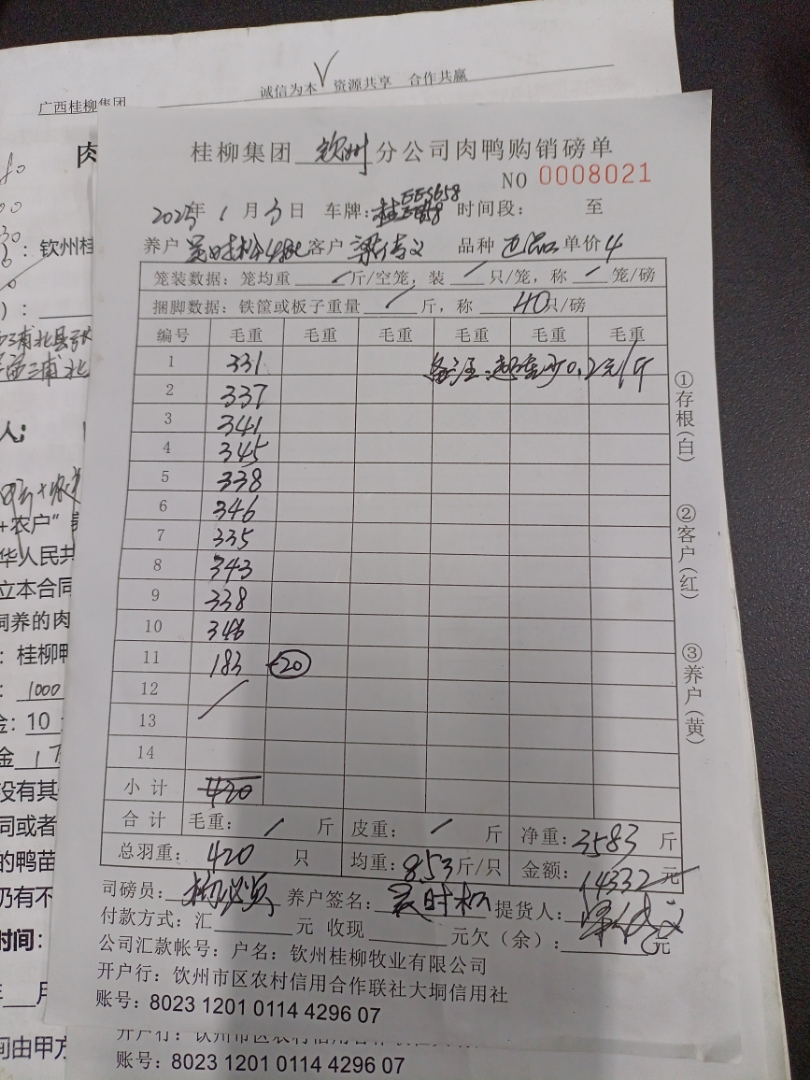 广西桂柳集团
诚信为本 资源共享 合作共赢
桂柳集团 钦州 分公司肉鸭购销磅单
NO 0008021
2025年 1 月 3 日 车牌: 桂 时间段: 至
养户 吴时松 客户 品种 单价 4
笼装数据: 笼均重 / 斤/空笼, 装 / 只/笼, 称 / 笼/磅
捆脚数据: 铁筐或板子重量 / 斤, 称 40 只/磅
编号 毛重 毛重 毛重 毛重 毛重 毛重
1 331 备注: 0.2元/斤
2 337
3 341
4 345
5 338
6 346
7 335
8 343
9 338
10 346
11 183 -20
12
13
14
小计 420
合计 毛重: / 斤 皮重: / 斤 净重: 3583 斤
总羽重: 420 只 均重: 8.53 斤/只 金额: 14332 元
司磅员: 养户签名: 吴时松 提货人:
付款方式: 汇 元 收现 元欠(余): 元
公司汇款帐号: 户名: 钦州桂柳牧业有限公司
开户行: 钦州市区农村信用合作联社大垌信用社
账号: 8023 1201 0114 4296 07
①存根(白)
②客户(红)
③养户(黄)
账号: 8023 1201 0114 4296 07
肉
: 钦州桂
人:
+农户"
华人民共
立本合同
饲养的肉
: 桂柳鸭
: 1000
金: 10
金
没有其
同或者
的鸭苗
仍有不
时间:
月
间由甲方